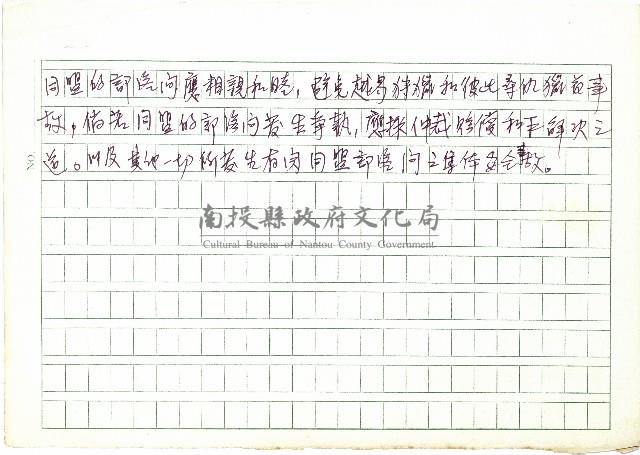 同盟的部落间應相親和睦，避免越界狩獵和彼此尋仇獵首事
故，倘若同盟的部落间發生爭執，應採仲裁賠償和平解決之
途。以及其他一切所發生有関同盟部落间之事件
南投縣政府文化局
Cultural Bureau of Nantou County Government